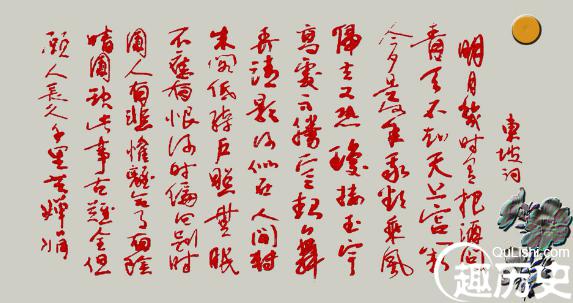 東坡词
明月幾时有把酒问
青天不知天上宫阙
今夕是何年我欲乘风
歸去又恐瓊楼玉宇
高處不勝寒起舞
弄清影何似在人间轉
朱阁低绮户照無眠
不應有恨何时偏向别时
圓人有悲惟離合月有陰
晴圓缺此事古難全但
願人長久千里共嬋娟
QuLiShi.com
趣历史